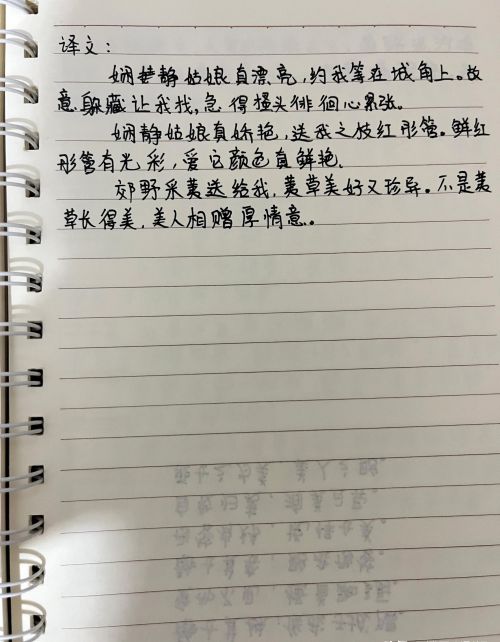 译文：
娴静姑娘真漂亮，约我等在城角上。故
意躲藏让我找，急得搔头徘徊心紧张。
娴静姑娘真娇艳，送我之枝红彤管。鲜红
彤管有光彩，爱它颜色真鲜艳。
郊野采荑送给我，荑草美好又珍异。不是荑
草长得美，美人相赠厚情意。